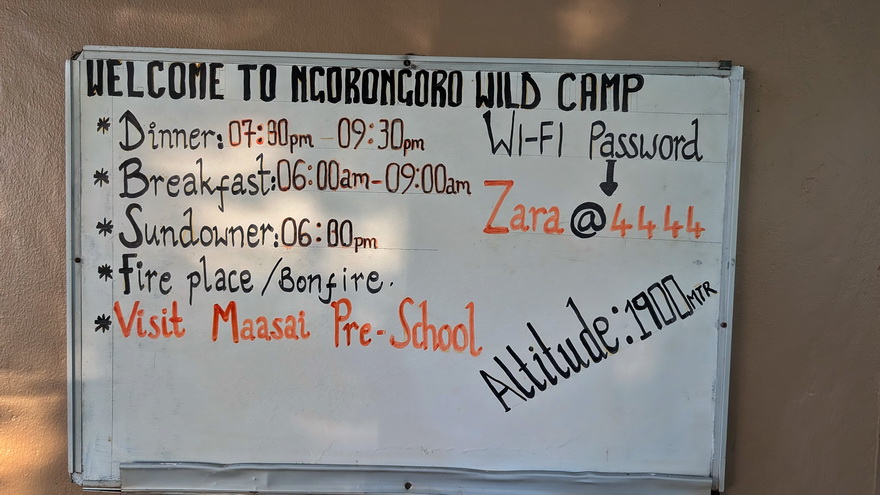 WELCOME TO NGORONGORO WILD CAMP
* Dinner: 07:30pm - 09:30pm
* Breakfast: 06:00am - 09:00am
* Sundowner: 06:00pm
* Fire place / Bonfire.
* Visit Maasai Pre-School
WI-FI Password
Zara@4444
Altitude: 1900 MTR